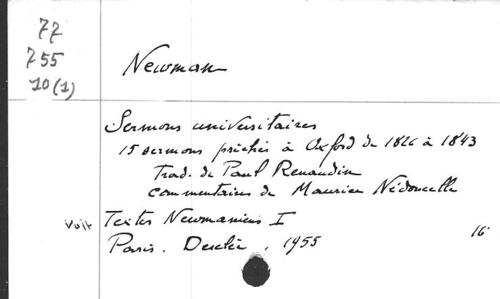 77
755
10(1)
Newman
Sermons universitaires
15 sermons prêchés à Oxford de 1826 à 1843
Trad. de Paul Renaudin
commentaires de Maurice Nédoncelle
Voir Textes Newmaniens I
Paris. Desclée, 1955 16